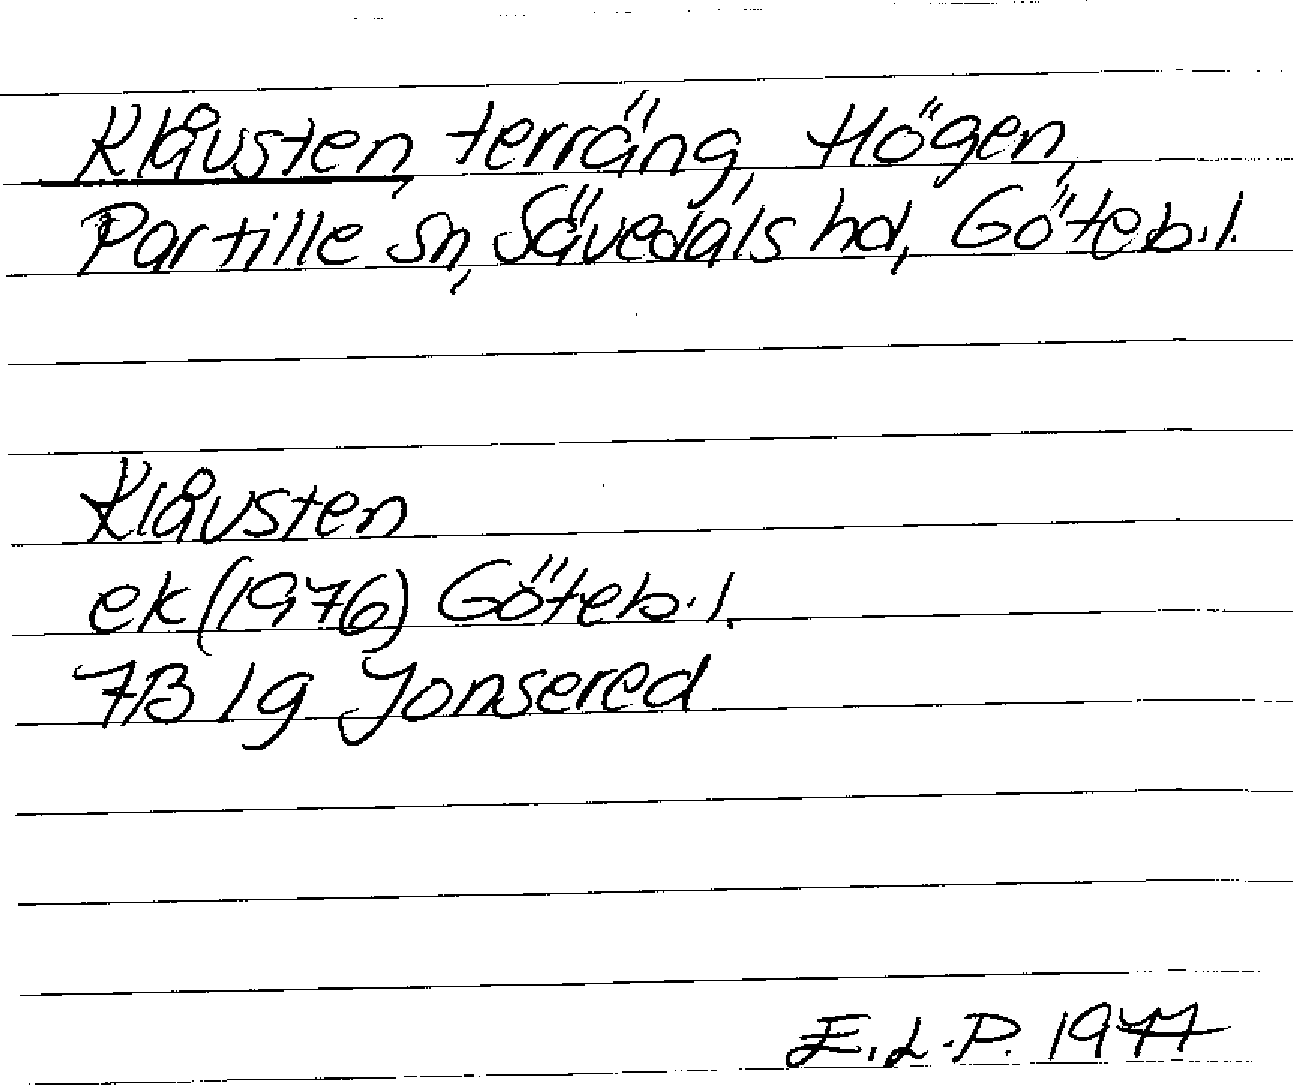 Klåvsten, terräng, Högen,
Partille sn, Sävedals hd, Göteb.l.
Klåvsten
ek (1976) Göteb.l.
7B 1g Jonsered
E.L.P. 1977